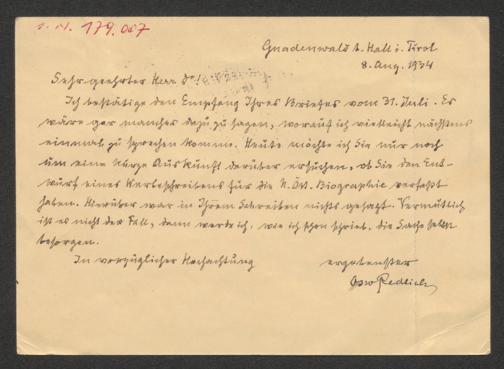 I. N. 179.007
Gnadenwald b. Hall i. Tirol
8. Aug. 1934
Sehr geehrter Herr Dr.!
Ich bestätige den Empfang Ihres Briefes vom 31. Juli. Es
wäre gar mancher dazu zu sagen, worauf ich vielleicht nächstens
einmal zu sprechen komme. Heute möchte ich Sie nur noch
um eine kurze Auskunft darüber ersuchen, ob Sie den Ent-
wurf eines Werbeschreibens für die N. Öst. Biographie verfaßt
haben. Hierüber war in Ihrem Schreiben nichts gesagt. Vermutlich
ist es nicht der Fall, dann werde ich, wie ich schon schrieb, die Sache selbst
besorgen.
In vorzüglicher Hochachtung
ergebenster
Osw Redlich